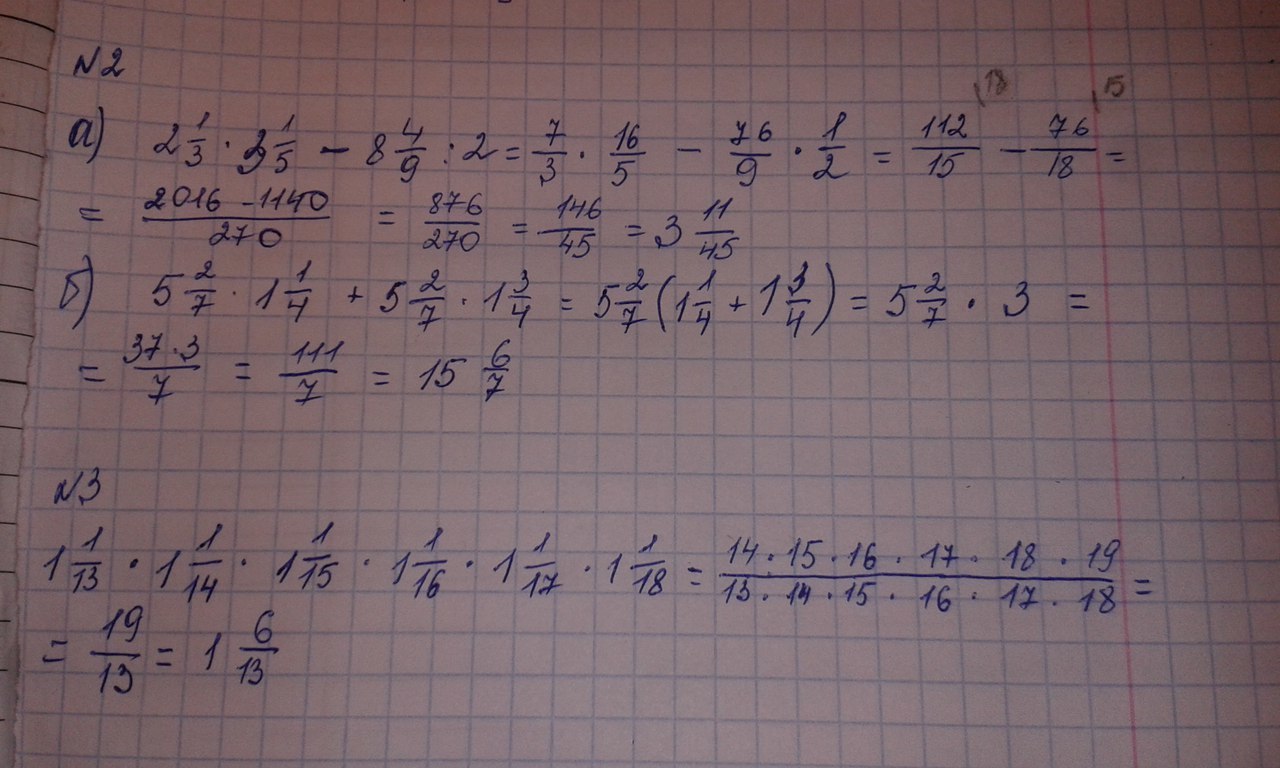 №2
а) 2 1/3 · 3 1/5 - 8 4/9 : 2 = 7/3 · 16/5 - 76/9 · 1/2 = 112/15 |18 - 76/18 |15 =
= (2016 - 1140)/270 = 876/270 = 146/45 = 3 11/45
б) 5 2/7 · 1 1/4 + 5 2/7 · 1 3/4 = 5 2/7 (1 1/4 + 1 3/4) = 5 2/7 · 3 =
= (37·3)/7 = 111/7 = 15 6/7
№3
1 1/13 · 1 1/14 · 1 1/15 · 1 1/16 · 1 1/17 · 1 1/18 = (14 · 15 · 16 · 17 · 18 · 19)/(13 · 14 · 15 · 16 · 17 · 18) =
= 19/13 = 1 6/13